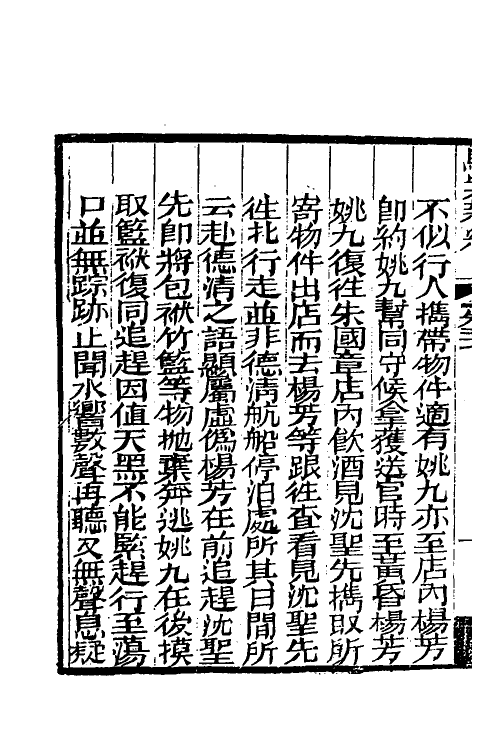 不似行人攜帶物件適有姚九亦至店內楊芳
即約姚九幫同守候拿獲送官時至黃昏楊芳
姚九復徃朱國章店內飲酒見沈聖先攜取所
寄物件出店而去楊芳等跟徃查看見沈聖先
徃北行走並非德清航船停泊處所其日間所
云赴德清之語顯屬虛偽楊芳在前追趕沈聖
先即將包袱竹籃等物拋棄奔逃姚九在後摸
取籃袱復同追趕因值天黑不能緊趕行至蕩
口並無踪跡止聞水響數聲再聽又無聲息疑